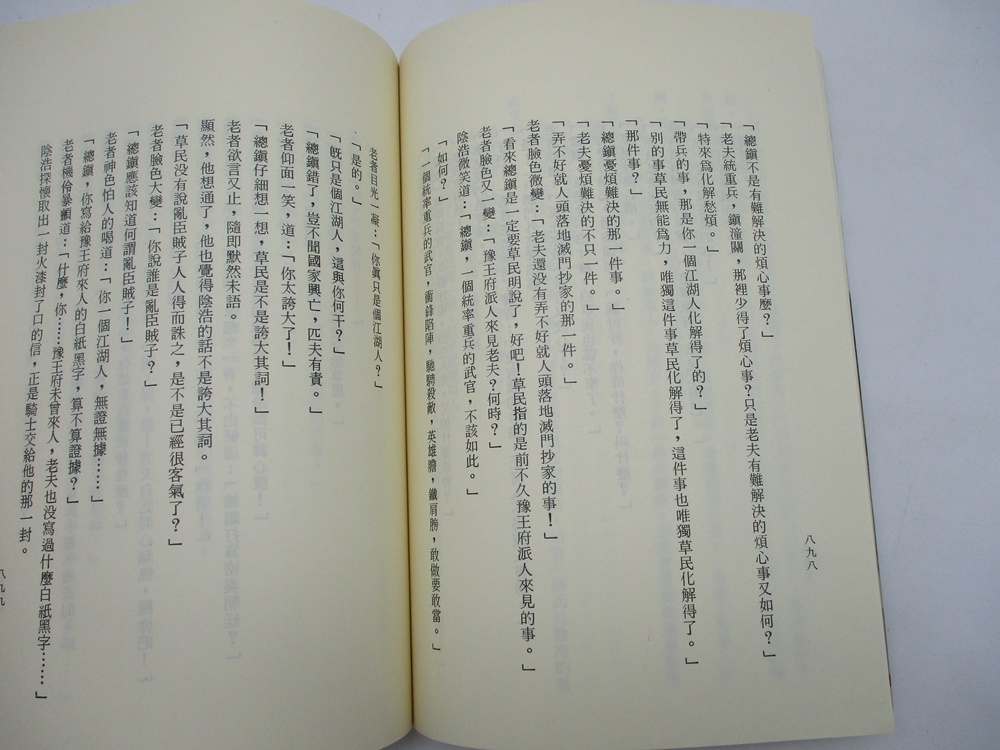 八九八
「總鎮不是有難解決的煩心事麼？」
「老夫統重兵，鎮潼關，那裡少得了煩心事？只是老夫有難解決的煩心事又如何？」
「特來為化解愁煩。」
「帶兵的事，那是你一個江湖人化解得了的？」
「別的事草民無能為力，唯獨這件事草民化解得了，這件事也唯獨草民化解得了。」
「那件事？」
「總鎮憂煩難決的那一件事。」
「老夫憂煩難決的不只一件。」
「弄不好就人頭落地滅門抄家的那一件。」
老者臉色微變：「老夫還没有弄不好就人頭落地滅門抄家的事！」
「看來總鎮是一定要草民明說了，好吧！草民指的是前不久豫王府派人來見的事。」
老者臉色又一變：「豫王府派人來見老夫？何時？」
陰浩微笑道：「總鎮，一個統率重兵的武官，不該如此。」
「如何？」
「一個統率重兵的武官，衝鋒陷陣，馳騁殺敵，英雄膽，鐵肩膀，敢做要敢當。」
老者目光一凝：「你真只是個江湖人？」
「是的。」
「既只是個江湖人，這與你何干？」
「總鎮錯了，豈不聞國家興亡，匹夫有責。」
老者仰面一笑，道：「你太誇大了！」
「總鎮仔細想一想，草民是不是誇大其詞！」
老者欲言又止，隨即默然未語。
顯然，他想通了，他也覺得陰浩的話不是誇大其詞。
「草民没有說亂臣賊子人人得而誅之，是不是已經很客氣了？」
老者臉色大變：「你說誰是亂臣賊子？」
「總鎮應該知道何謂亂臣賊子！」
老者神色怕人的喝道：「你一個江湖人，無證無據……」
「總鎮，你寫給豫王府來人的白紙黑字，算不算證據？」
老者機伶暴顫道：「什麼，你……豫王府未曾來人，老夫也没寫過什麼白紙黑字……」
陰浩探懷取出一封火漆封了口的信，正是騎士交給他的那一封。
八九九